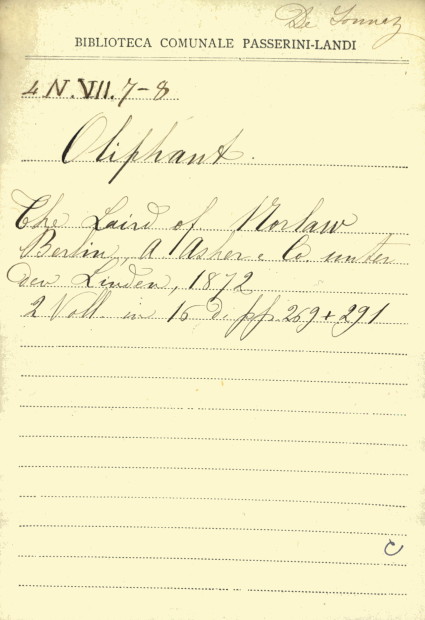 De Sonnaz
BIBLIOTECA COMUNALE PASSERINI-LANDI
4 N. VII. 7-8
Oliphant.
The Laird of Norlaw
Berlin, A. Asher e Co unter
den Linden, 1872
2 Voll. in 16 di pp. 269 + 291
C